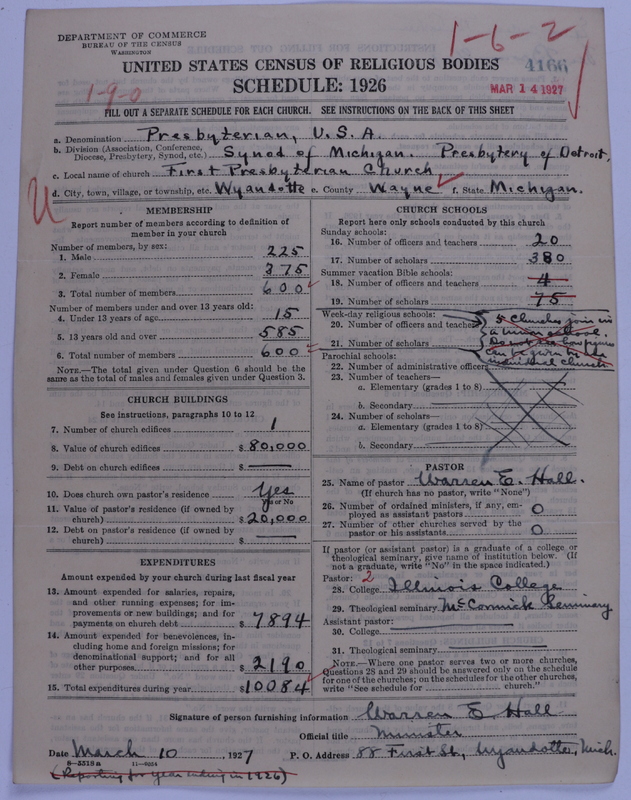 DEPARTMENT OF COMMERCE
BUREAU OF THE CENSUS
WASHINGTON
1-6-2
UNITED STATES CENSUS OF RELIGIOUS BODIES
4166
SCHEDULE: 1926
MAR 14 1927
1-9-0
FILL OUT A SEPARATE SCHEDULE FOR EACH CHURCH. SEE INSTRUCTIONS ON THE BACK OF THIS SHEET
a. Denomination Presbyterian, U.S.A.
b. Division (Association, Conference, Diocese, Presbytery, Synod, etc.) Synod of Michigan. Presbytery of Detroit.
c. Local name of church First Presbyterian Church
d. City, town, village, or township, etc. Wyandotte e. County Wayne f. State Michigan.
MEMBERSHIP
Report number of members according to definition of
member in your church
Number of members, by sex:
1. Male 225
2. Female 375
3. Total number of members 600
Number of members under and over 13 years old:
4. Under 13 years of age 15
5. 13 years old and over 585
6. Total number of members 600
NOTE.—The total given under Question 6 should be the
same as the total of males and females given under Question 3.
CHURCH BUILDINGS
See instructions, paragraphs 10 to 12
7. Number of church edifices 1
8. Value of church edifices $ 80,000
9. Debt on church edifices $
10. Does church own pastor's residence Yes
Yes or No
11. Value of pastor's residence (if owned by
church) $ 20,000
12. Debt on pastor's residence (if owned by
church) $
EXPENDITURES
Amount expended by your church during last fiscal year
13. Amount expended for salaries, repairs,
and other running expenses; for im-
provements or new buildings; and for
payments on church debt $ 7894
14. Amount expended for benevolences, in-
cluding home and foreign missions; for
denominational support; and for all
other purposes $ 2190
15. Total expenditures during year $ 10084
CHURCH SCHOOLS
Report here only schools conducted by this church
Sunday schools:
16. Number of officers and teachers 20
17. Number of scholars 380
Summer vacation Bible schools:
18. Number of officers and teachers 4
19. Number of scholars 75
Week-day religious schools:
20. Number of officers and teachers
21. Number of scholars
5 Churches join in
a union school.
Do not see how figures
can be given by the
individual church
Parochial schools:
22. Number of administrative officers
23. Number of teachers—
a. Elementary (grades 1 to 8)
b. Secondary
24. Number of scholars—
a. Elementary (grades 1 to 8)
b. Secondary
PASTOR
25. Name of pastor Warren E. Hall.
(If church has no pastor, write "None")
26. Number of ordained ministers, if any, em-
ployed as assistant pastors 0
27. Number of other churches served by the
pastor or his assistants 0
If pastor (or assistant pastor) is a graduate of a college or
theological seminary, give name of institution below. (If
not a graduate, write "No" in the space indicated.)
Pastor: 2
28. College Illinois College
29. Theological seminary McCormick Seminary
Assistant pastor:
30. College
31. Theological seminary
NOTE.—Where one pastor serves two or more churches,
Questions 28 and 29 should be answered only on the schedule
for one of the churches; on the schedules for the other churches,
write "See schedule for church."
Signature of person furnishing information Warren E Hall
Official title Minister
Date March 10, 1927 P. O. Address 88 First St, Wyandotte, Mich.
8-5518a 11-9034
(Reporting for year ending in 1926)